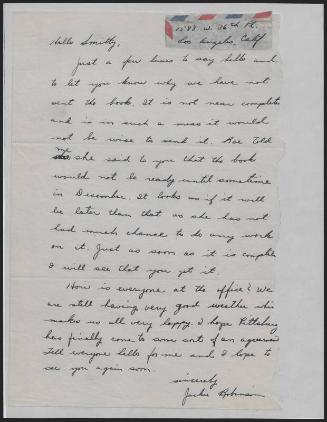 1588 W. 36th Pl.
Los Angeles, Calif
Hello Smitty,
Just a few lines to say hello and
to let you know why we have not
sent the book. It is not near complete
and is in such a mess it would
not be wise to send it. Rae told
me she said to you that the book
would not be ready until sometime
in December. It looks as if it will
be later than that as she has not
had much chance to do any work
on it. Just as soon as it is complete
I will see that you get it.
How is everyone at the office? We
are still having very good weather
makes us all very happy. I hope Pittsburg
has finally come to some sort of an
Tell everyone hello for me and I hope to
see you again soon.
sincerely
Jackie Robinson